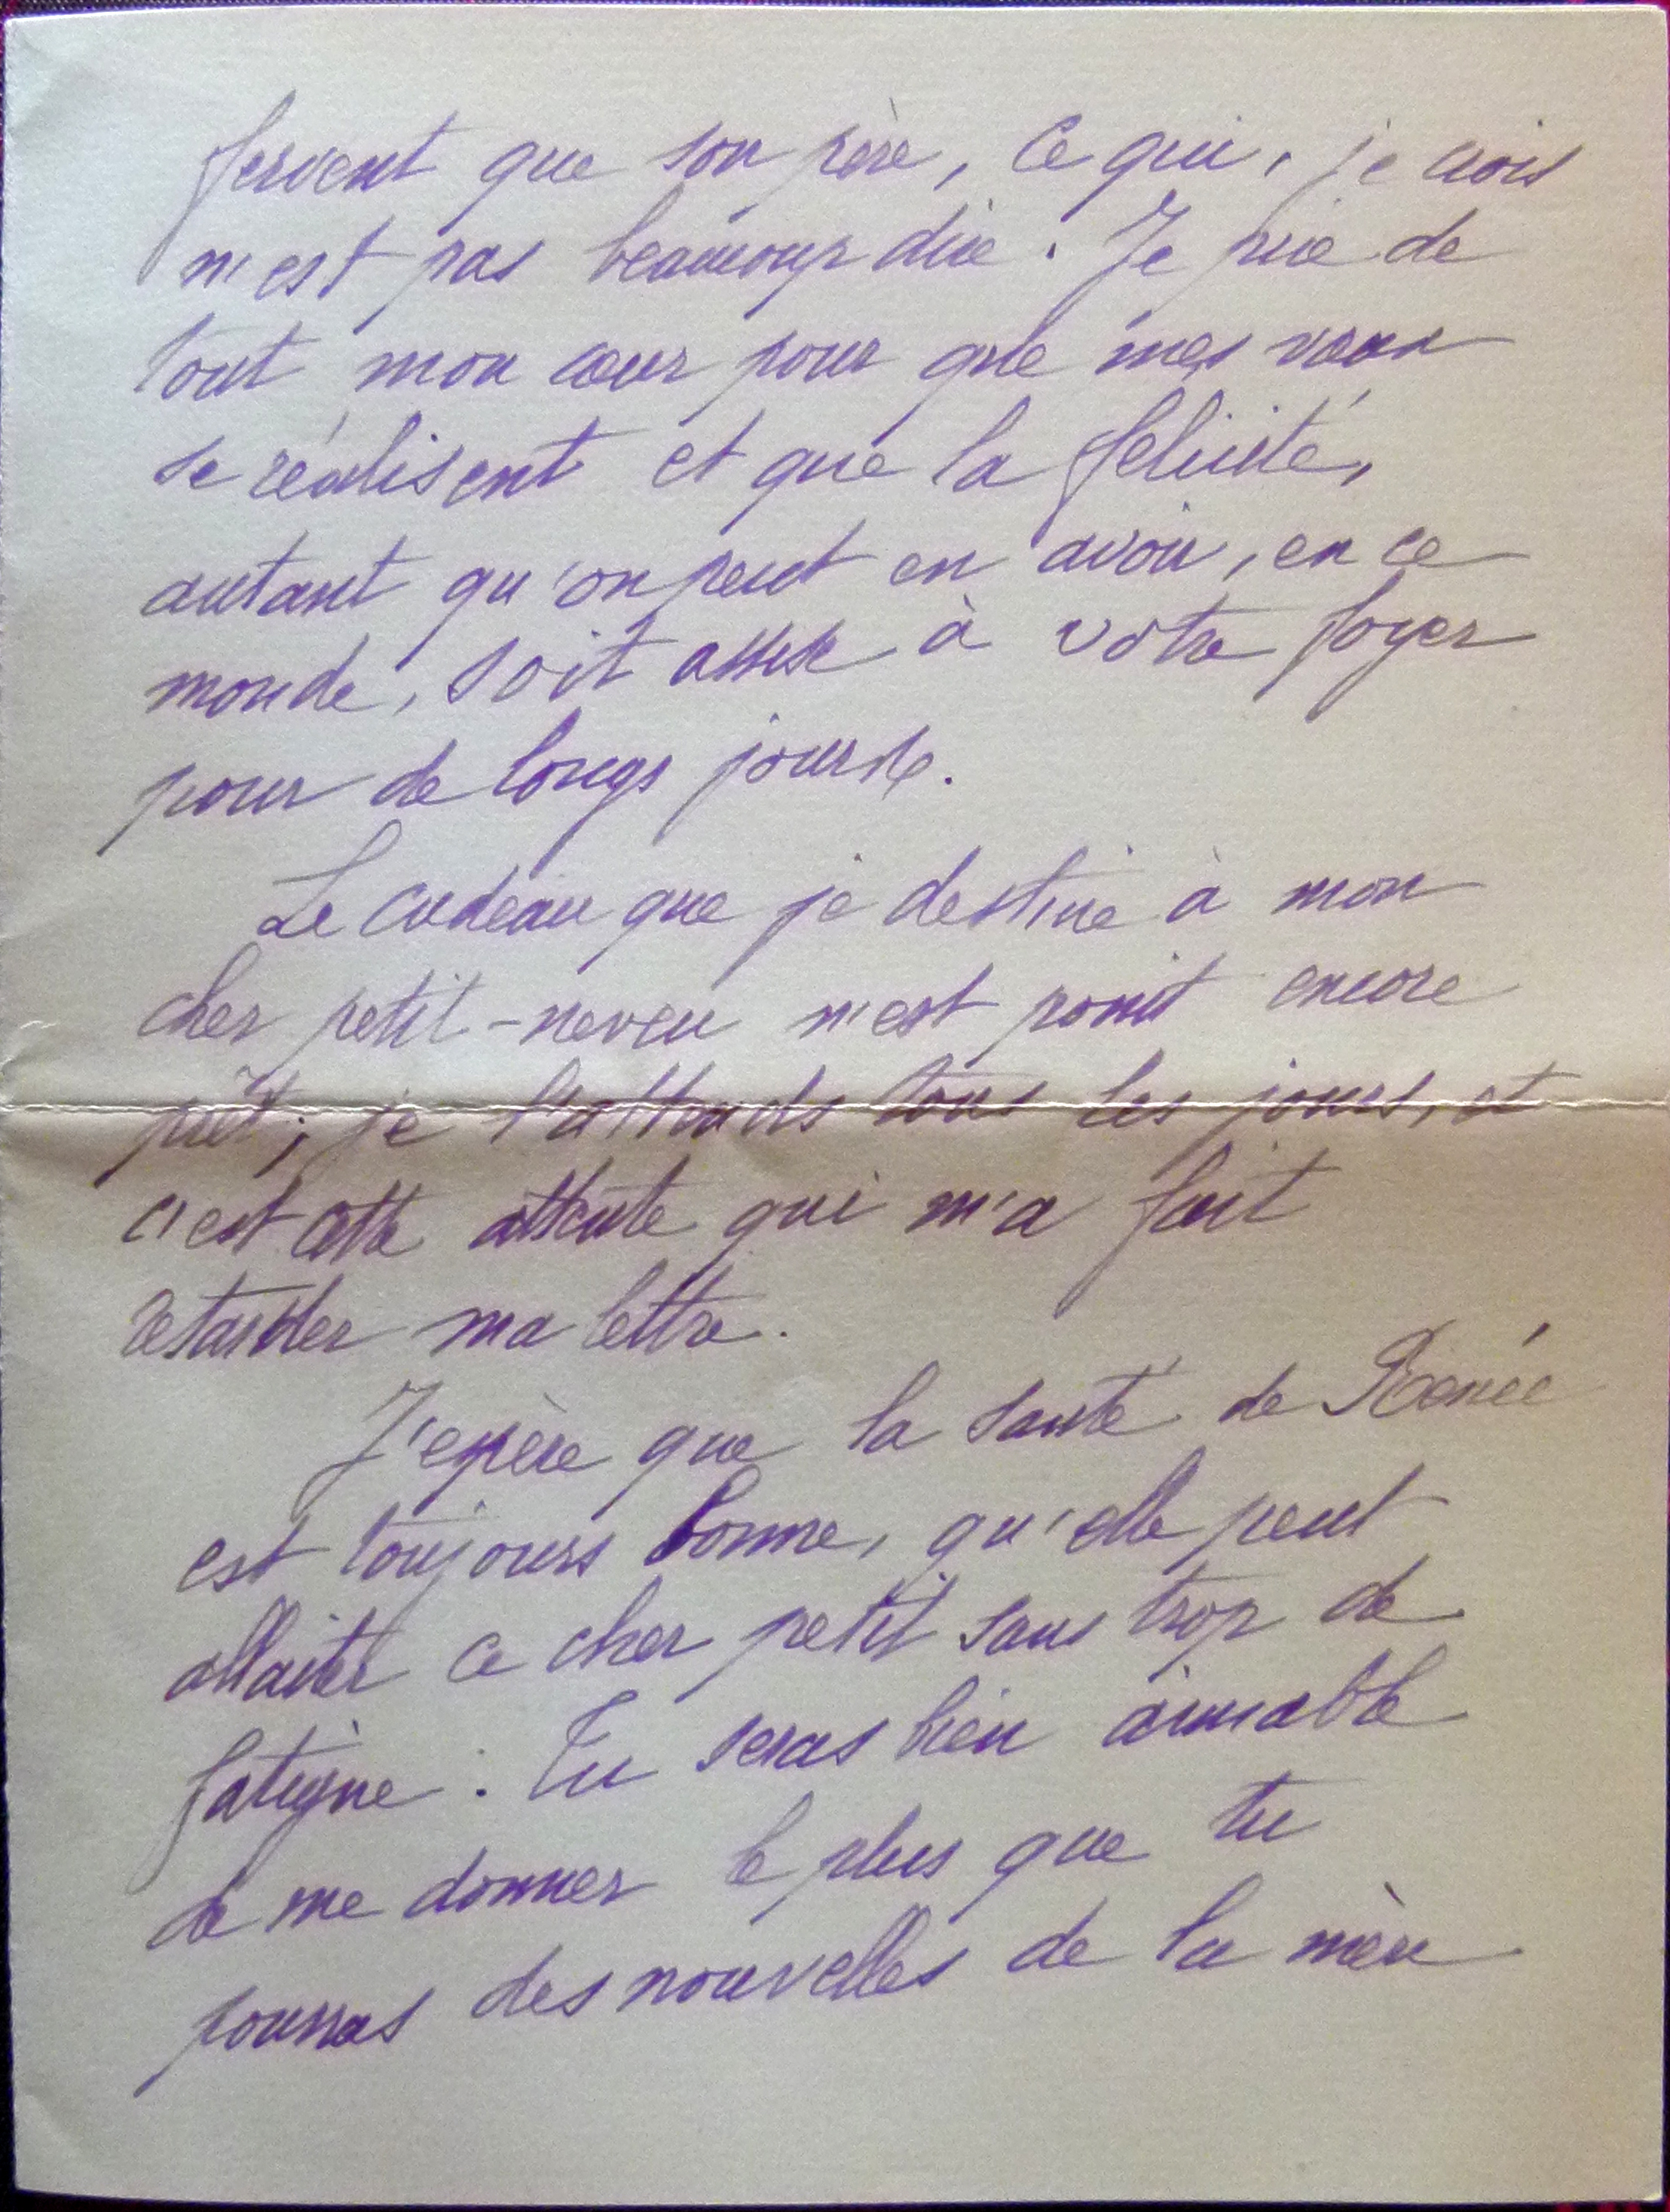 fervent que son père, ce qui, je crois
n'est pas beaucoup dire. Je prie de
tout mon cœur pour que mes vœux
se réalisent et que la félicité,
autant qu'on peut en avoir, en ce
monde, soit assise à votre foyer
pour de longs jours.
Le cadeau que je destine à mon
cher petit-neveu n'est point encore
prêt; je l'attends tous les jours, et
c'est cette attente qui m'a fait
retarder ma lettre.
J'espère que la santé de Renée
est toujours bonne, qu'elle peut
allaiter ce cher petit sans trop de
fatigue. Tu seras bien aimable
de me donner le plus que tu
pourras des nouvelles de la mère